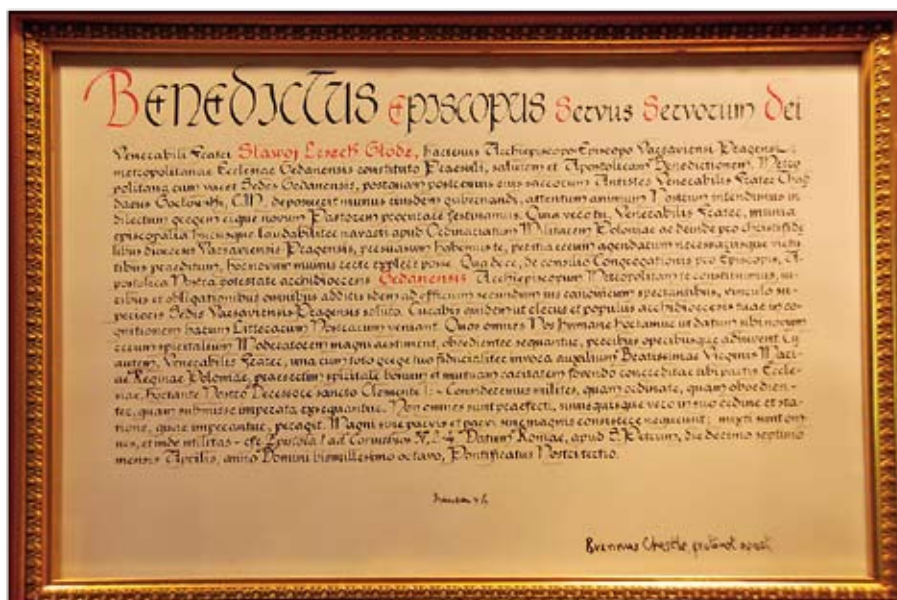 BENEDICTUS EPISCOPUS Servus Servorum Dei
Venerabili Fratri Slawoj Leszek Głódź, hactenus Archiepiscopo Episcopo Varsaviensi Pragensi,
metropolitanae Ecclesiae Gedanensis constituto Praesuli, salutem et Apostolicam Benedictionem. Metro
politana cum vacet Sedes Gedanensis, postquam postremus eius sacrorum Antistes Venerabilis Frater Thad
daeus Gocłowski, C.M. deposuerit munus eiusdem gubernandi, attentum animum Nostrum intendimus in
dilectum gregem eique novum Pastorem procurare festinamus. Quia vero tu, Venerabilis Frater, munia
episcopalia hucusque laudabiliter navasti apud Ordinariatum Militarem Poloniae ac deinde pro christifide
libus dioecesis Varsaviensis Pragensis, persuasum habemus te, peritia rerum agendarum necessariisque virtu
tibus praeditum, hoc novum munus recte explere posse. Qua de re, de consilio Congregationis pro Episcopis, A-
postolica Nostra potestate archidioecesis Gedanensis Archiepiscopum Metropolitam te constituimus, iu-
ribus et obligationibus omnibus additis idem ad officium secundum ius canonicum spectantibus, vinculo su-
perioris Sedis Varsaviensis Pragensis soluto. Curabis quidem ut clerus et populus archidioecesis tuae in co-
gnitionem harum Litterarum Nostrarum veniant. Quos omnes Nos firmane hortamur ut datum sibi novum
rerum spiritalium Moderatorem magni aestiment, obedienter sequantur, precibus operibusque adiuvent. Tu
autem, Venerabilis Frater, una cum toto grege tuo fidualiter invoca auxilium Beatissimae Virginis Mari-
ae Reginae Poloniae, praesertim spiritale bonum et mutuam caritatem fovendo concreditae tibi partis Eccle-
siae, hortante Nostro Decessore sancto Clemente I: - Consideremus milites, quam ordinate, quam oboedien-
ter, quam submisse imperata exsequantur. Non omnes sunt praefecti, suus quisque vero in suo ordine et sta-
tione, quae imperantur, peragit. Magni sine parvis et parvi sine magnis consistere nequeunt; mixti sunt om-
nes, et inde utilitas - cfr Epistola I ad Corinthios 37, 2-4. Datum Romae, apud S. Petrum, die decimo septimo
mensis Aprilis, anno Domini bismillesimo octavo, Pontificatus Nostri tertio.